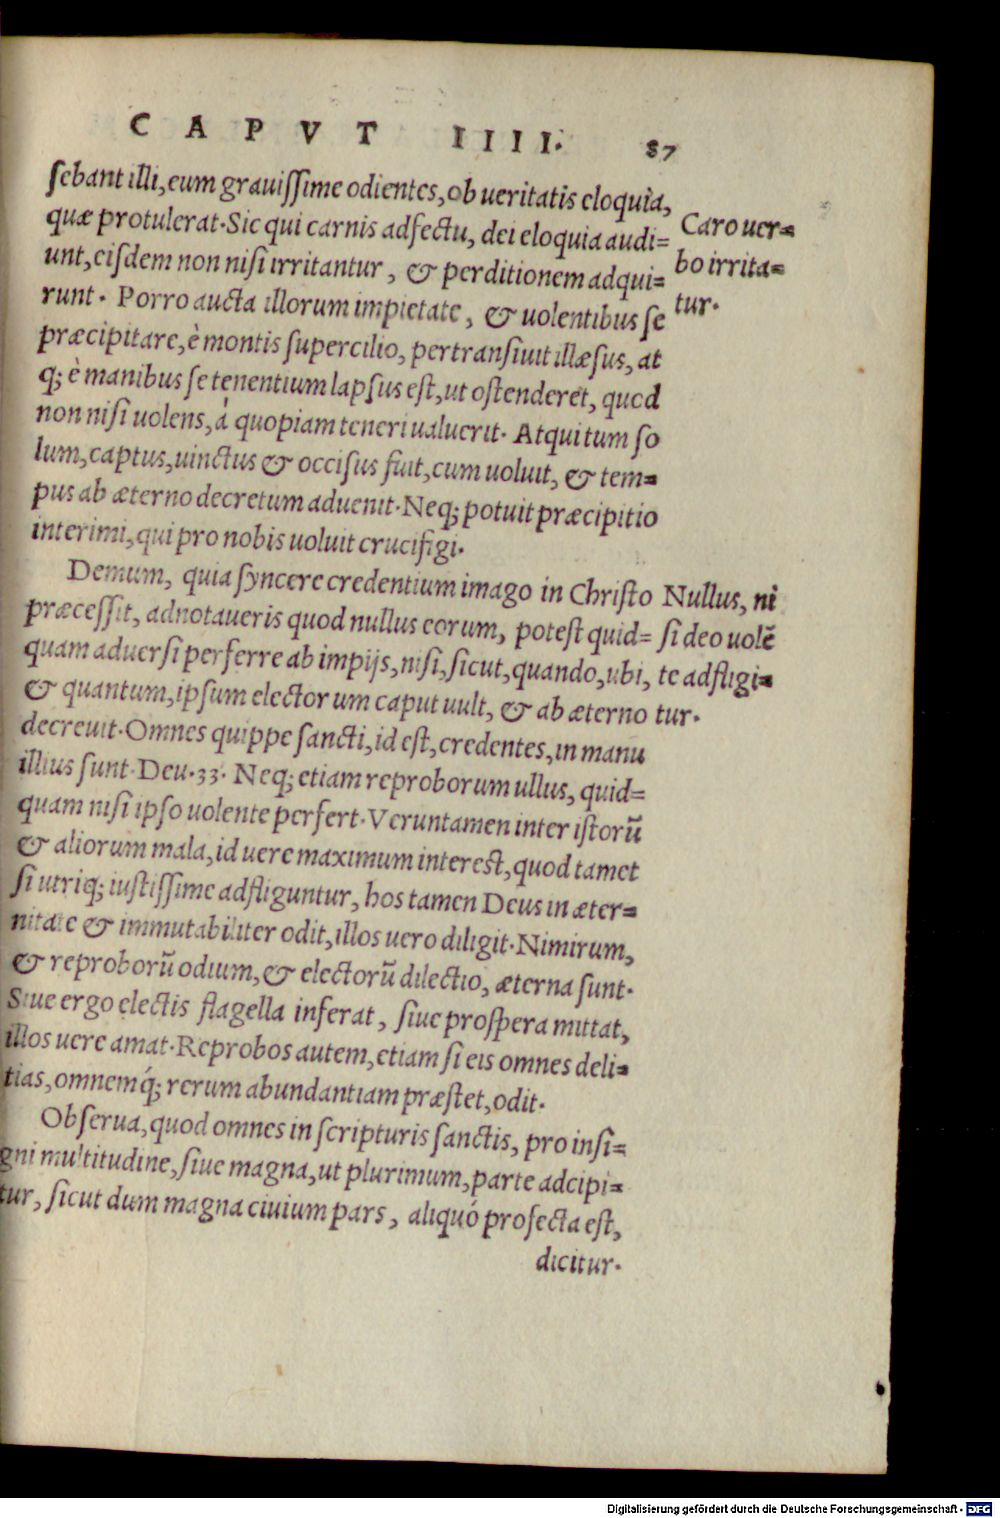 CAPVT IIII. 87
sebant illi, eum grauissime odientes, ob ueritatis eloquia,
quæ protulerat. Sic qui carnis adfectu, dei eloquia audi=
unt, eisdem non nisi irritantur, & perditionem adqui=
runt. Porro aucta illorum impietate, & uolentibus se
præcipitare, è montis supercilio, pertransiuit illæsus, at
q; è manibus se tenentium lapsus est, ut ostenderet, quod
non nisi uolens, à quopiam teneri ualuerit. Atqui tum so
lum, captus, uinctus & occisus fuit, cum uoluit, & tem=
pus ab æterno decretum aduenit. Neq; potuit præcipitio
interimi, qui pro nobis uoluit crucifigi.
Caro uer=
bo irrita=
tur.
Demum, quia syncere credentium imago in Christo
præcessit, adnotaueris quod nullus eorum, potest quid=
quam aduersi perferre ab impijs, nisi, sicut, quando, ubi,
& quantum, ipsum electorum caput uult, & ab æterno
decreuit. Omnes quippe sancti, id est, credentes, in manu
illius sunt. Deu. 33. Neq; etiam reproborum ullus, quid=
quam nisi ipso uolente perfert. Veruntamen inter istorū
& aliorum mala, id uere maximum interest, quod tamet
si utriq; iustissime adfliguntur, hos tamen Deus in æter=
nitate & immutabiliter odit, illos uero diligit. Nimirum,
& reproborū odium, & electorū dilectio, æterna sunt.
Siue ergo electis flagella inferat, siue prospera mittat,
illos uere amat. Reprobos autem, etiam si eis omnes deli=
tias, omnemq́; rerum abundantiam præstet, odit.
Nullus, ni
si deo uolē
te adfligi=
tur.
Obserua, quod omnes in scripturis sanctis, pro insi=
gni multitudine, siue magna, ut plurimum, parte adcipi=
tur, sicut dum magna ciuium pars, aliquó profecta est,
dicitur.
Digitalisierung gefördert durch die Deutsche Forschungsgemeinschaft - DFG